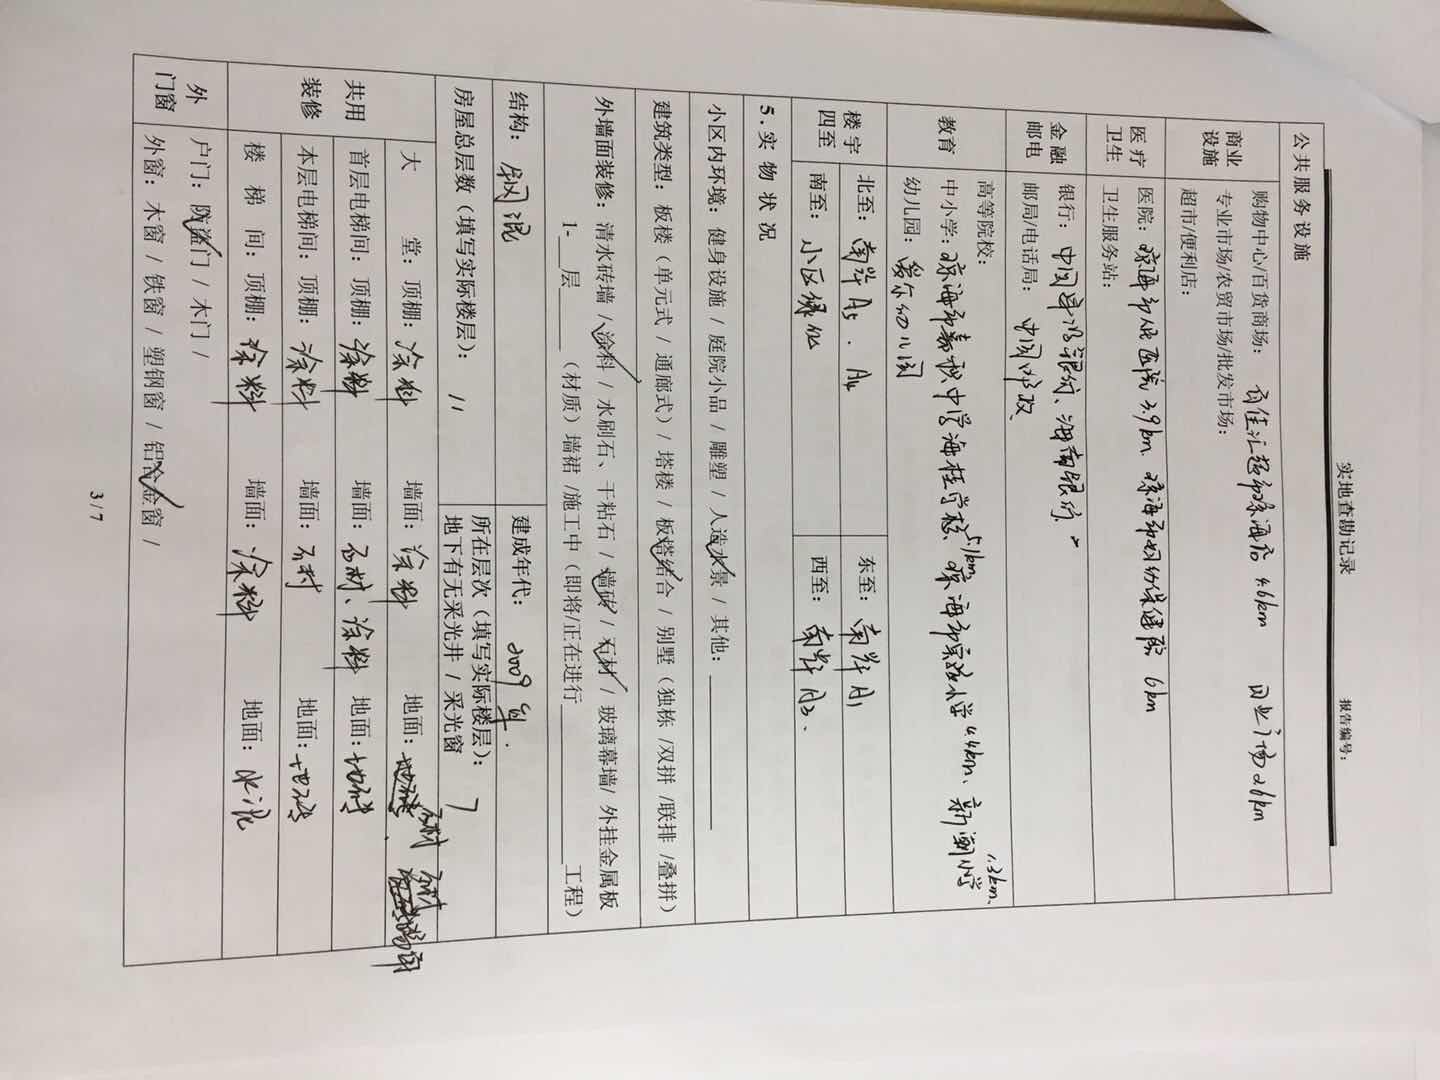 实地查勘记录 报告编号:
公共服务设施
商业设施 购物中心/百货商场: 百佳汇超市琼海店 4.6km 广场2.6km
专业市场/农贸市场/批发市场:
超市/便利店:
医疗卫生 医院: 琼海市人民医院 3.9km、琼海市妇幼保健院 6km
卫生服务站:
金融邮电 银行: 中国建设银行、海南银行
邮局/电话局: 中国邮政
教育 高等院校:
中小学: 琼海市嘉积中学海桂学校 5.1km、琼海市 小学 4.4km、新 小学 1.3km、
幼儿园: 爱尔幼儿园
楼宇四至 北至: 南岸A5、A4 东至: 南岸A1
南至: 小区绿化 西至: 南岸A3、
5.实物状况
小区内环境: 健身设施 / 庭院小品 / 雕塑 / 人造水景 / 其他:
建筑类型: 板楼（单元式 / 通廊式）/ 塔楼 / 板塔结合 / 别墅（独栋 /双拼 /联排 /叠拼）
外墙面装修: 清水砖墙 /涂料 / 水刷石、干粘石 / 墙砖 / 石材 / 玻璃幕墙/ 外挂金属板
1-___层______（材质）墙裙 /施工中（即将/正在进行______工程）
结构: 钢混 建成年代: 2009年.
房屋总层数（填写实际楼层）: 11 所在层次（填写实际楼层）: 7
地下有无采光井 / 采光窗
共用装修 大 堂: 顶棚: 涂料 墙面: 涂料 地面: 石材
首层电梯间: 顶棚: 涂料 墙面: 石材、涂料 地面: 地砖
本层电梯间: 顶棚: 涂料 墙面: 石材 地面: 地砖
楼 梯 间: 顶棚: 涂料 墙面: 涂料 地面: 水泥
外门窗 户门: 防盗门 / 木门 /
外窗: 木窗 / 铁窗 / 塑钢窗 / 铝合金窗 /
3 / 7